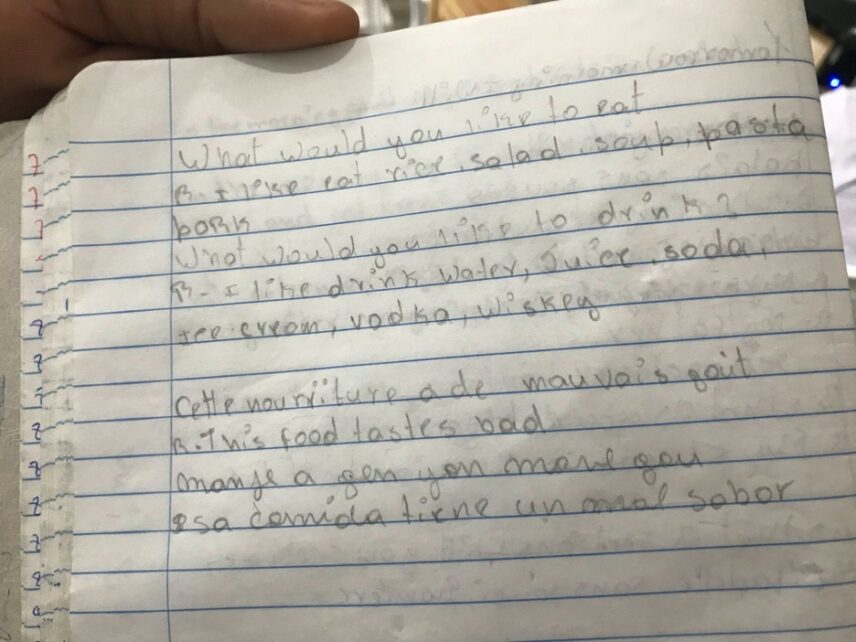 What would you like to eat
R- I like eat rice, salad, soup, pasta
pork
What would you like to drink?
R- I like drink water, Juice, soda,
Ice cream, vodka, wiskey
Cette nourriture a de mauvais goût
R. This food tastes bad
manje a gen yon move gou
esa comida tiene un mal sabor